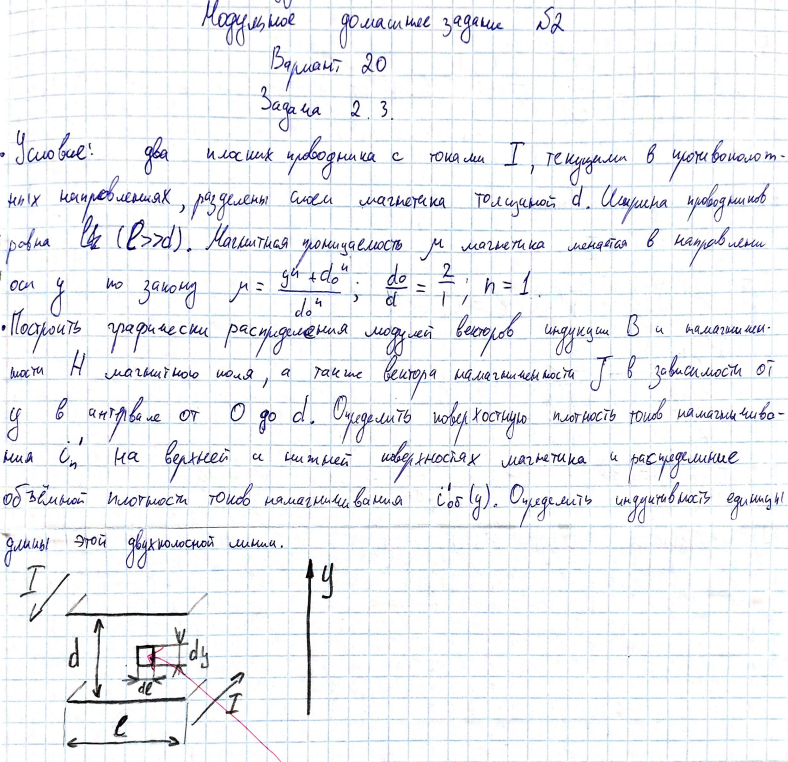 Модульное домашнее задание №2
Вариант 20
Задача 2.3.
• Условие: два плоских проводника с токами I, текущими в противополож-
ных направлениях, разделены слоем магнетика толщиной d. Ширина проводников
равна l (l>>d). Магнитная проницаемость μ магнетика меняется в направлени
оси y по закону μ = (yⁿ + d₀ⁿ)/d₀ⁿ ; d₀/d = 2/1 ; n = 1.
• Построить графически распределения модулей векторов индукции B и намагничен-
ности H магнитного поля, а также вектора намагниченности J в зависимости от
y в интрвале от 0 до d. Определить поверхостную плотность токов намагничива-
ния i'ₙ на верхней и нижней поверхностях магнетика и распределиние
объёмной плотности токов намагничивания i'об (y). Определить индуктивность единицы
длины этой двухполосной линии.
I
y
d
dy
dl
I
l